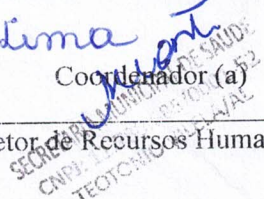 Lima
Coordenador (a)
etor de Recursos Huma
SECRETARIA MUNICIPAL DE SAÚDE
CNPJ:
TEOTONIO VILELA/AL